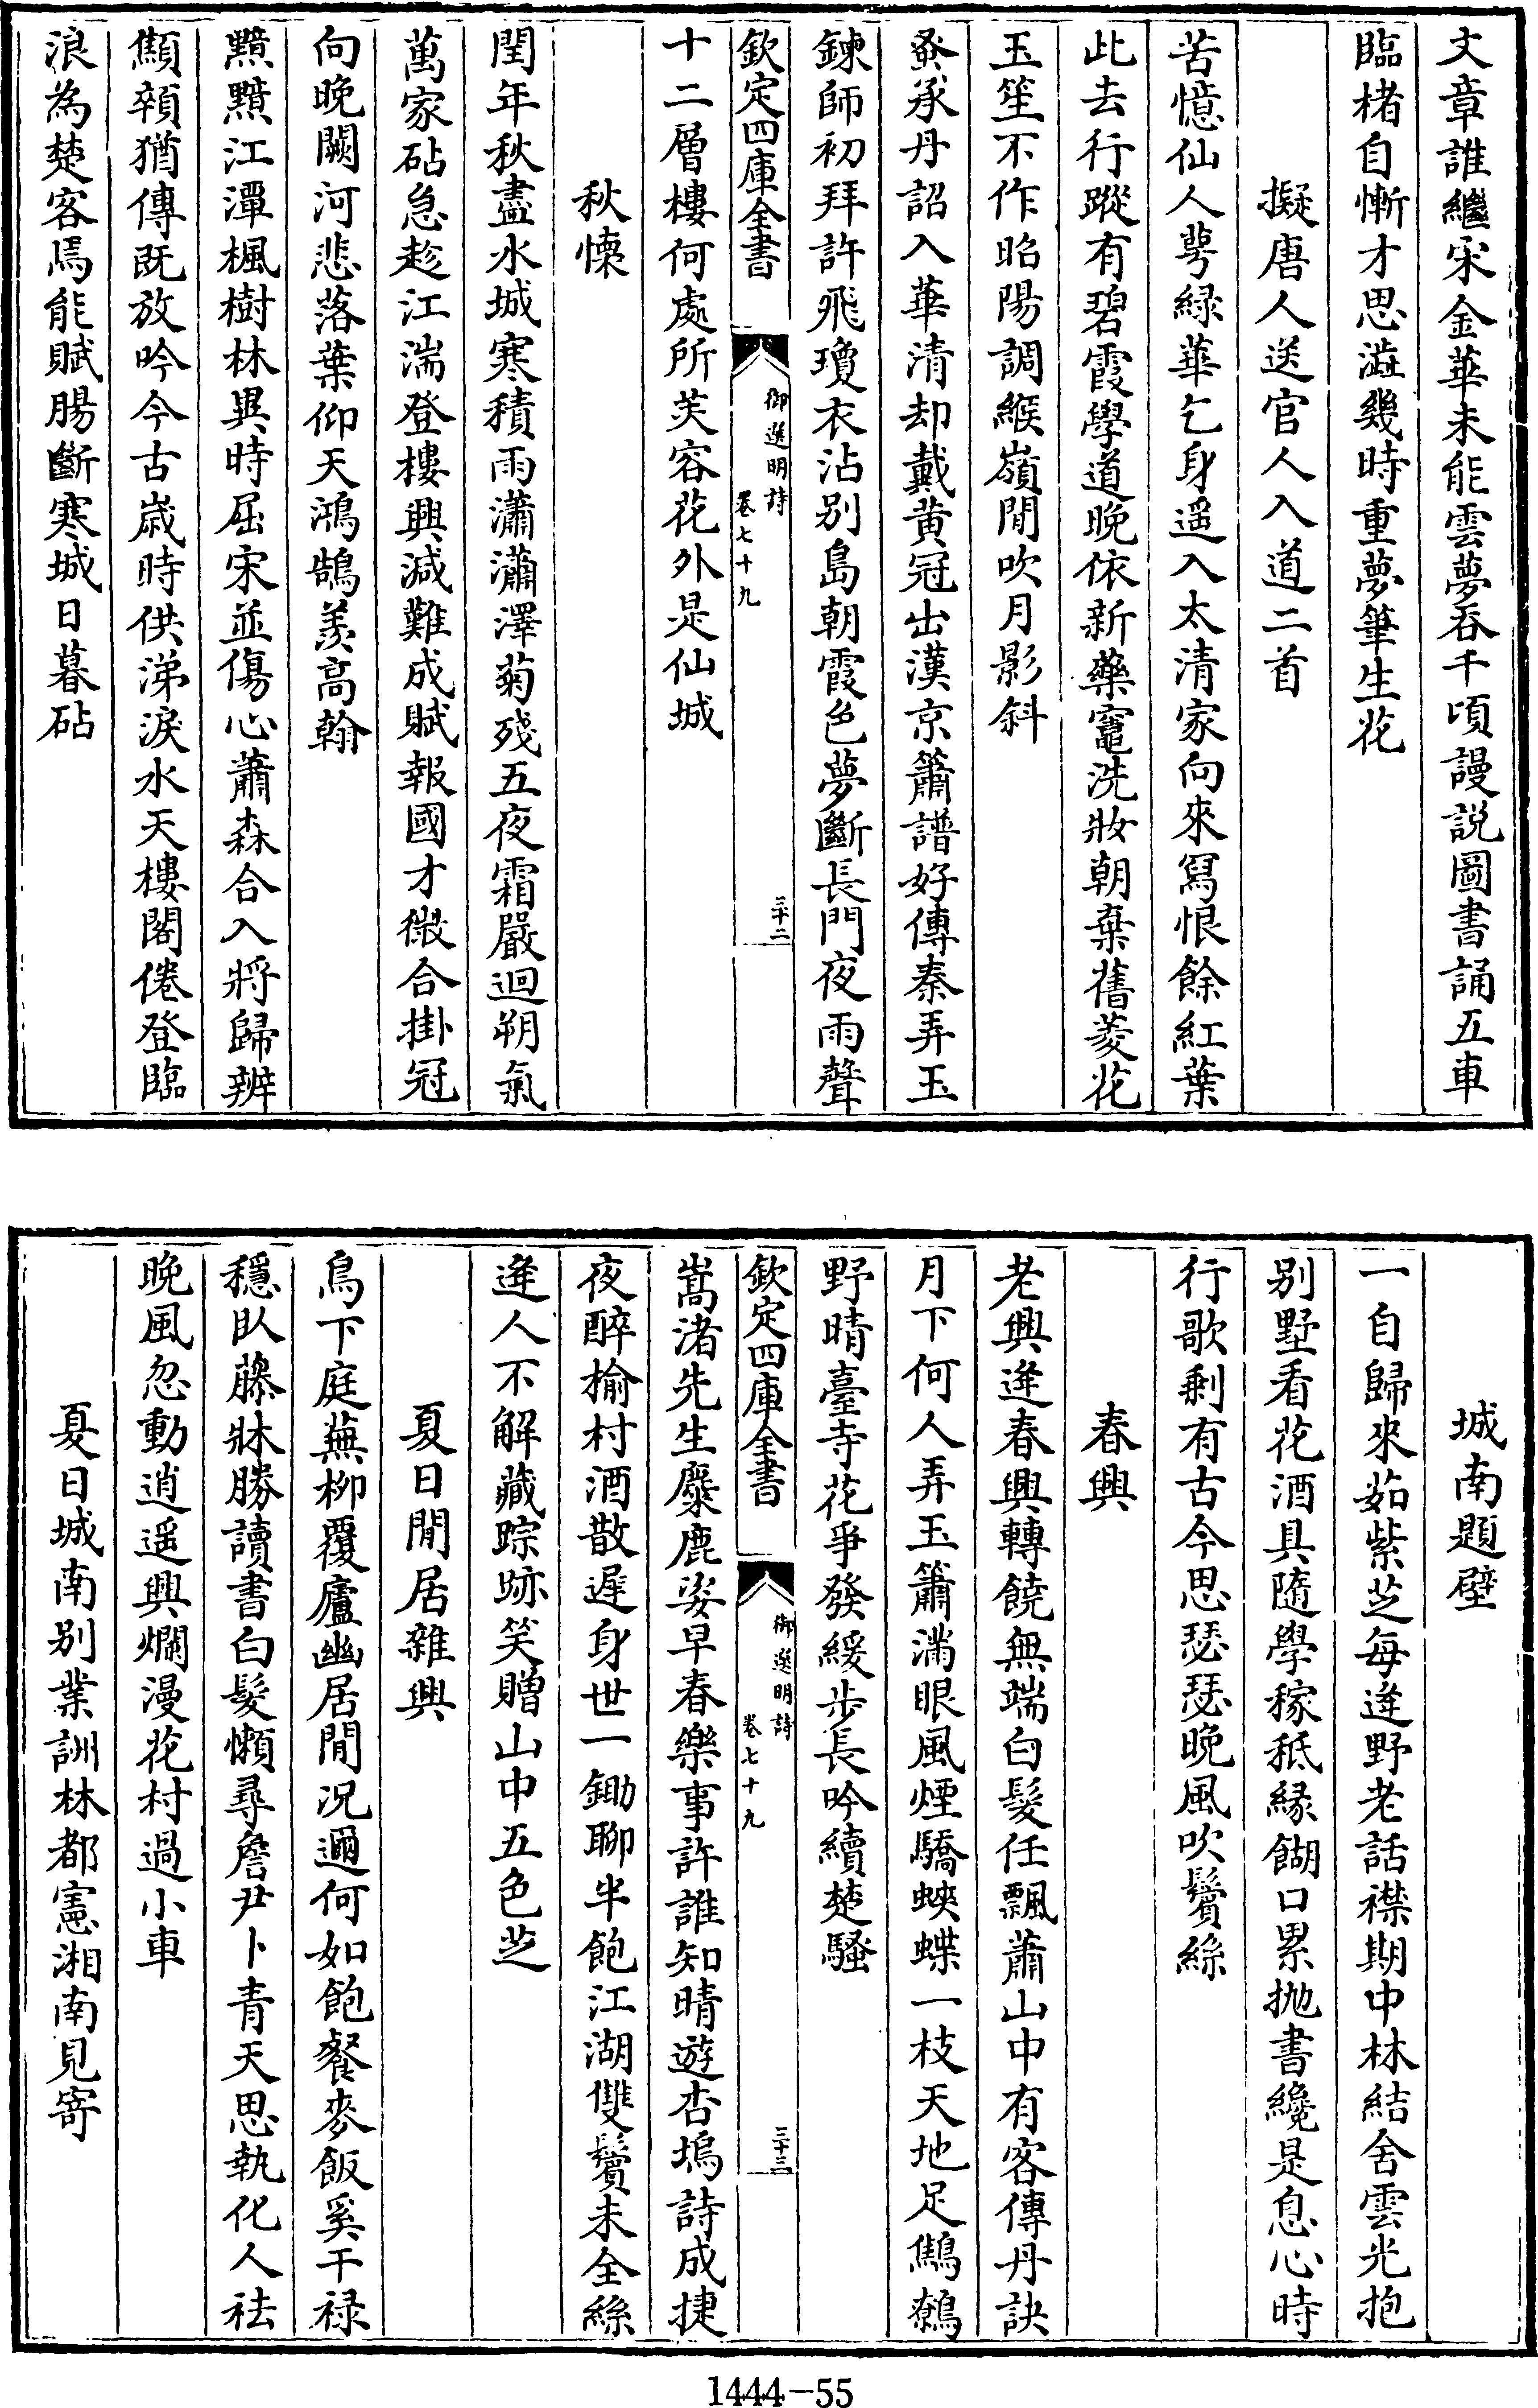 文章誰繼宋金華未能雲夢吞千頃謾説圖書誦五車
臨楮自慚才思澁幾時重夢筆生花
擬唐人送官人入道二首
苦憶仙人萼緑華乞身遥入太清家向來冩恨餘紅葉
此去行蹤有碧霞學道晚依新藥竈洗妝朝棄舊菱花
玉笙不作昭陽調緱嶺閒吹月影斜
蚤承丹詔入華清却戴黄冠出漢京簫譜好傳秦弄玉
鍊師初拜許飛瓊衣沾别島朝霞色夢斷長門夜雨聲
欽定四庫全書
御選明詩
卷七十九
三十二
十二層樓何處所芙容花外是仙城
秋懐
閏年秋盡水城寒積雨瀟瀟澤菊殘五夜霜嚴迴朔氣
萬家砧急趁江湍登樓興減難成賦報國才微合掛冠
向晚闕河悲落葉仰天鴻鵠羨高翰
黯黯江潭楓樹林異時屈宋並傷心蕭森合入將歸辨
顦顇猶傳既放吟今古歲時供涕淚水天樓閣倦登臨
浪為楚客焉能賦腸斷寒城日暮砧
城南題壁
一自歸來茹紫芝每逢野老話襟期中林結舍雲光抱
别墅看花酒具隨學稼秪縁餬口累抛書纔是息心時
行歌剩有古今思瑟瑟晚風吹鬢絲
春興
老興逢春興轉饒無端白髪任飄蕭山中有客傳丹訣
月下何人弄玉簫滿眼風煙驕蛺蝶一枝天地足鷦鷯
野晴臺寺花爭發緩步長吟續楚騷
欽定四庫全書
御選明詩
卷七十九
三十三
嵩渚先生麋鹿姿早春樂事許誰知晴遊杏塢詩成捷
夜醉榆村酒散遲身世一鋤聊半飽江湖雙鬢未全絲
逢人不解藏踪跡笑贈山中五色芝
夏日閒居雜興
鳥下庭蕪柳覆廬幽居閒況邇何如飽餐麥飯奚干禄
穏臥藤牀勝讀書白髪懶尋詹尹卜青天思執化人袪
晚風忽動逍遥興爛漫花村過小車
夏日城南别業詶林都憲湘南見寄
1444-55